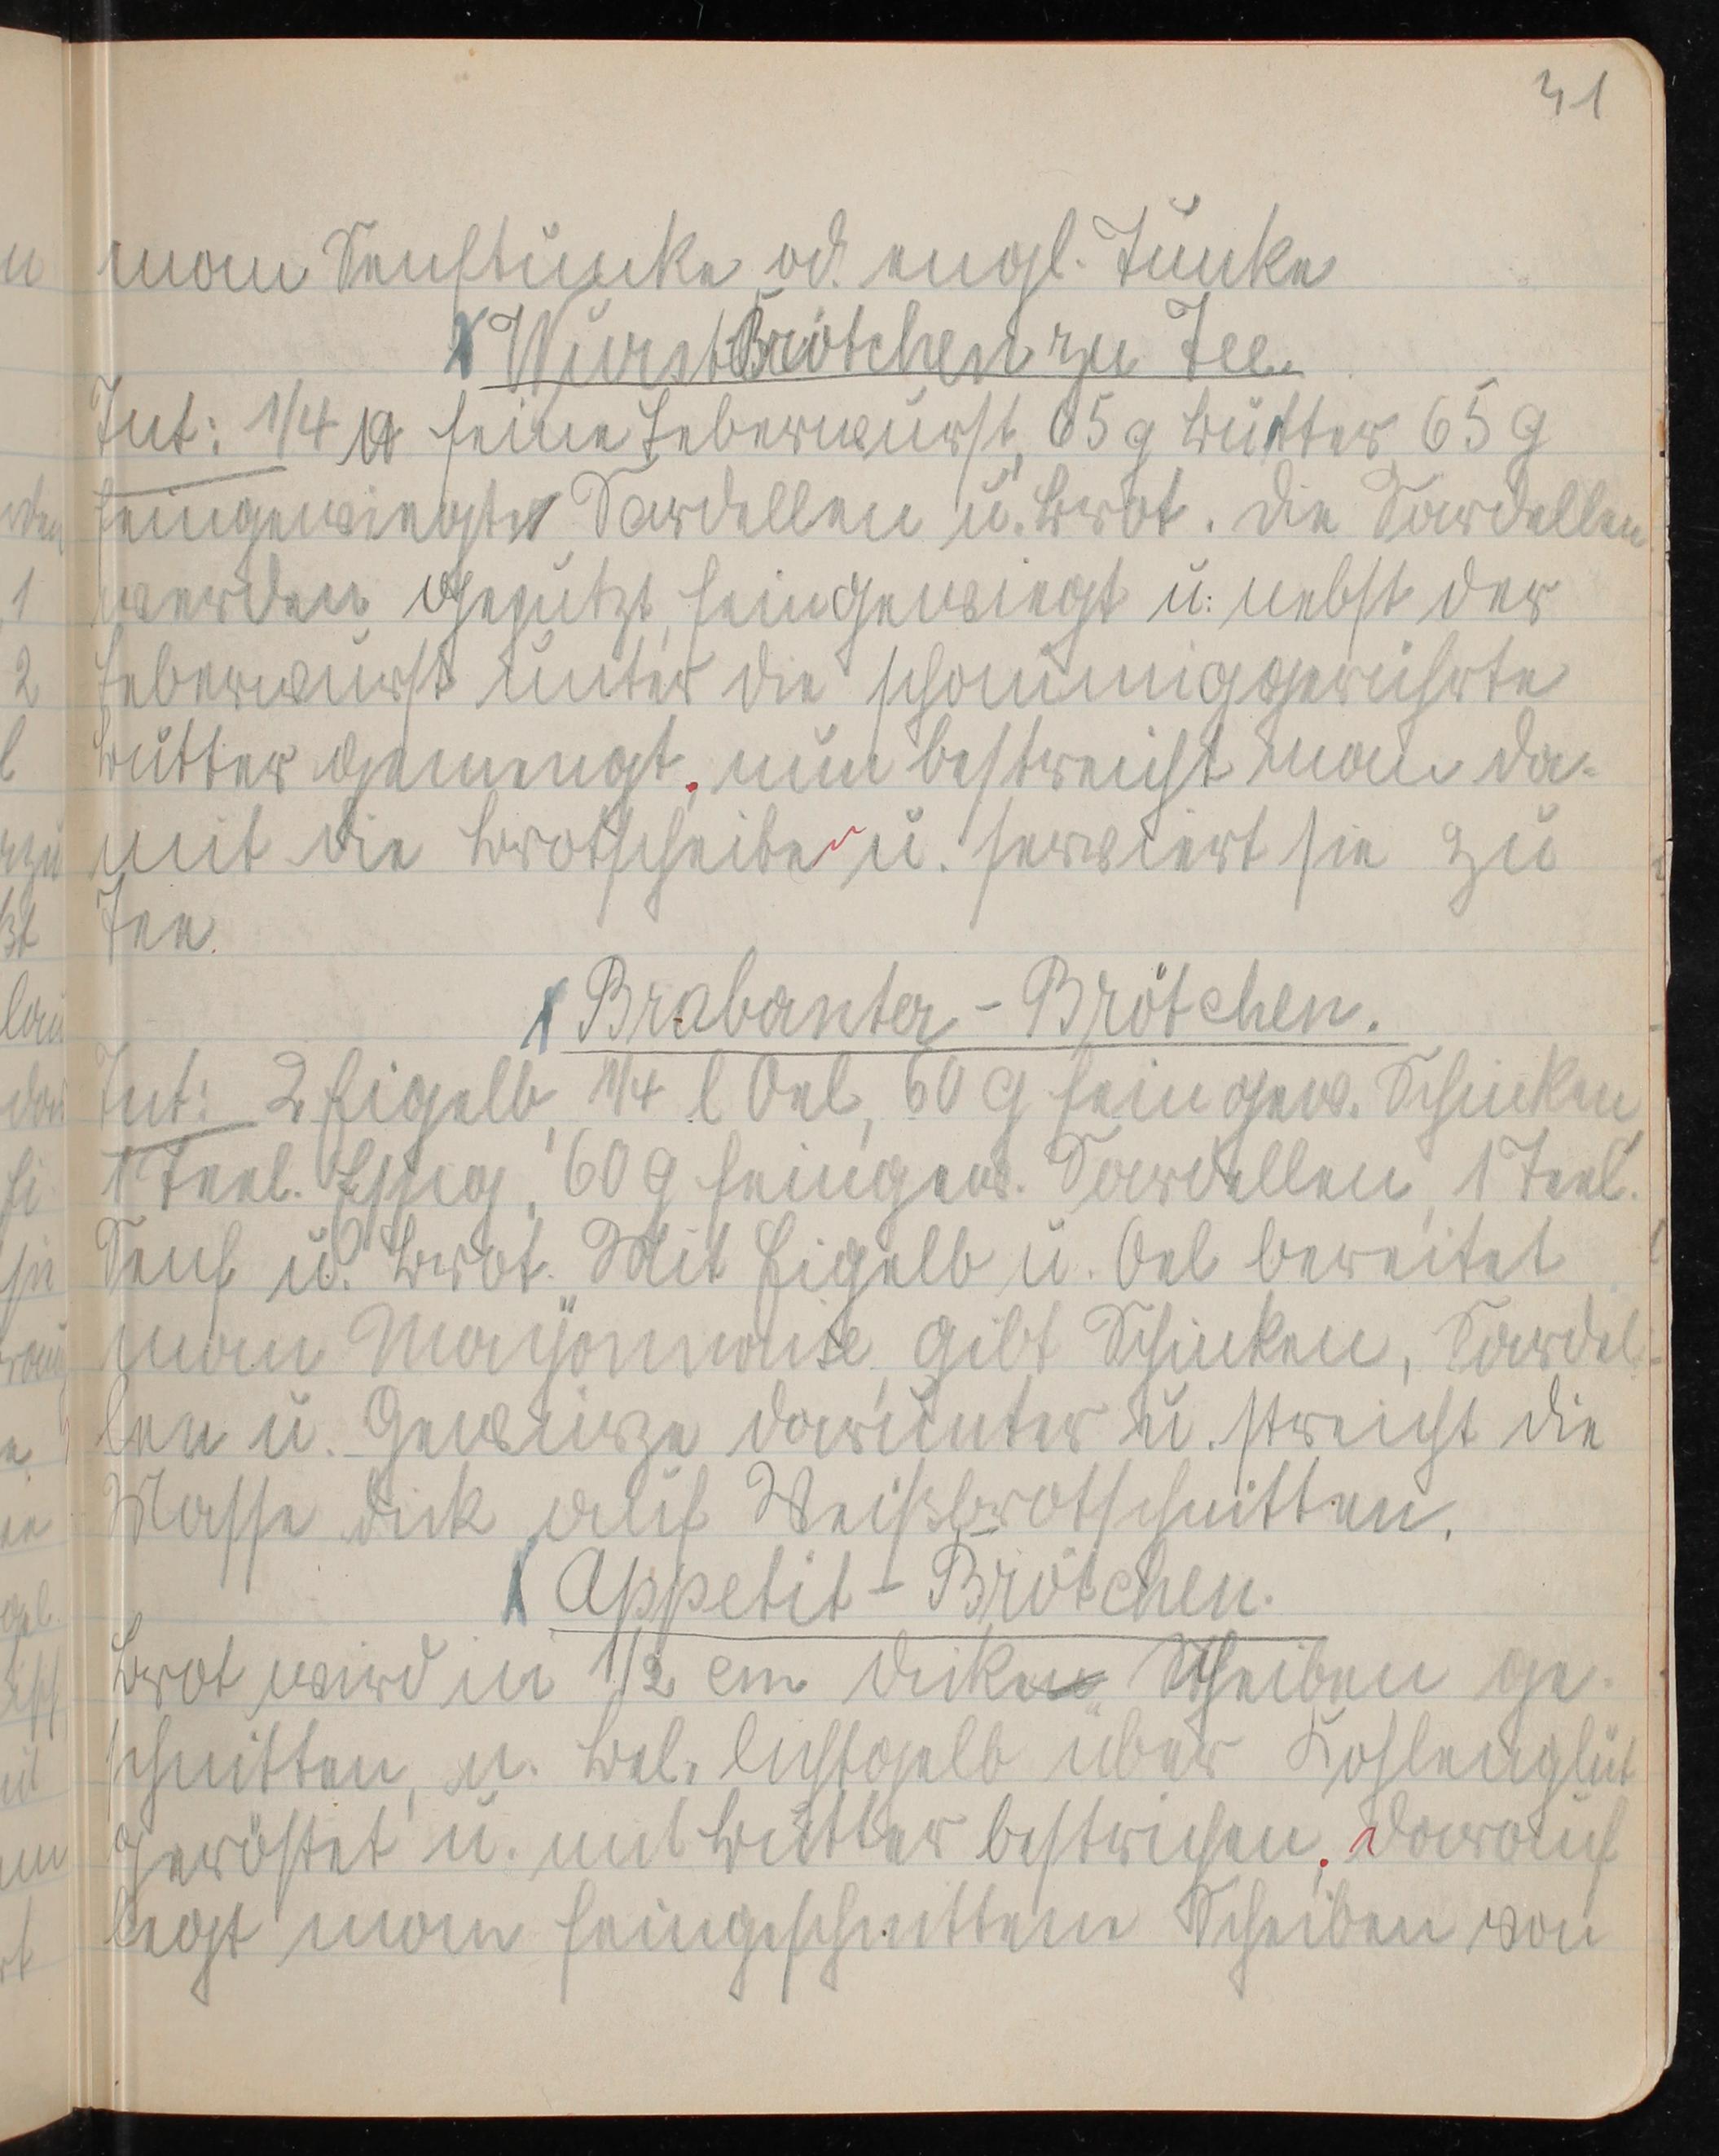 31
man Senftunke od. engl. Tunke
Wurst Brötchen zu Tee.
Zut: 1/4 ℔ feine Leberwurst, 65 g Butter, 65 g
feingewiegte Sardellen u. Brot. Die Sardellen
werden geputzt, feingewiegt u: nebst der
Leberwurst unter die schaumiggerührte
Butter gemengt, nun bestreicht man da-
mit die Brotscheiben u. serviert sie zu
Tee.
Brabanter - Brötchen.
Zut: 2 Eigelb, 1/4 l Oel, 60 g feingew. Schinken
1 Teel. Essig, 60 g feingew. Sardellen, 1 Teel.
Senf u. Brot. Mit Eigelb u. Oel bereitet
man Mayonnaise, gibt Schinken, Sardel-
len u. Gewürze darunter u. streicht die
Masse dick auf Weißbrotschnitten.
Appetit - Brötchen.
Brot wird in 1/2 cm dicke Scheiben ge-
schnitten, u. hellichtgelb über Kohlenglut
geröstet u. mit Butter bestrichen, darauf
legt man feingeschnittene Scheiben von